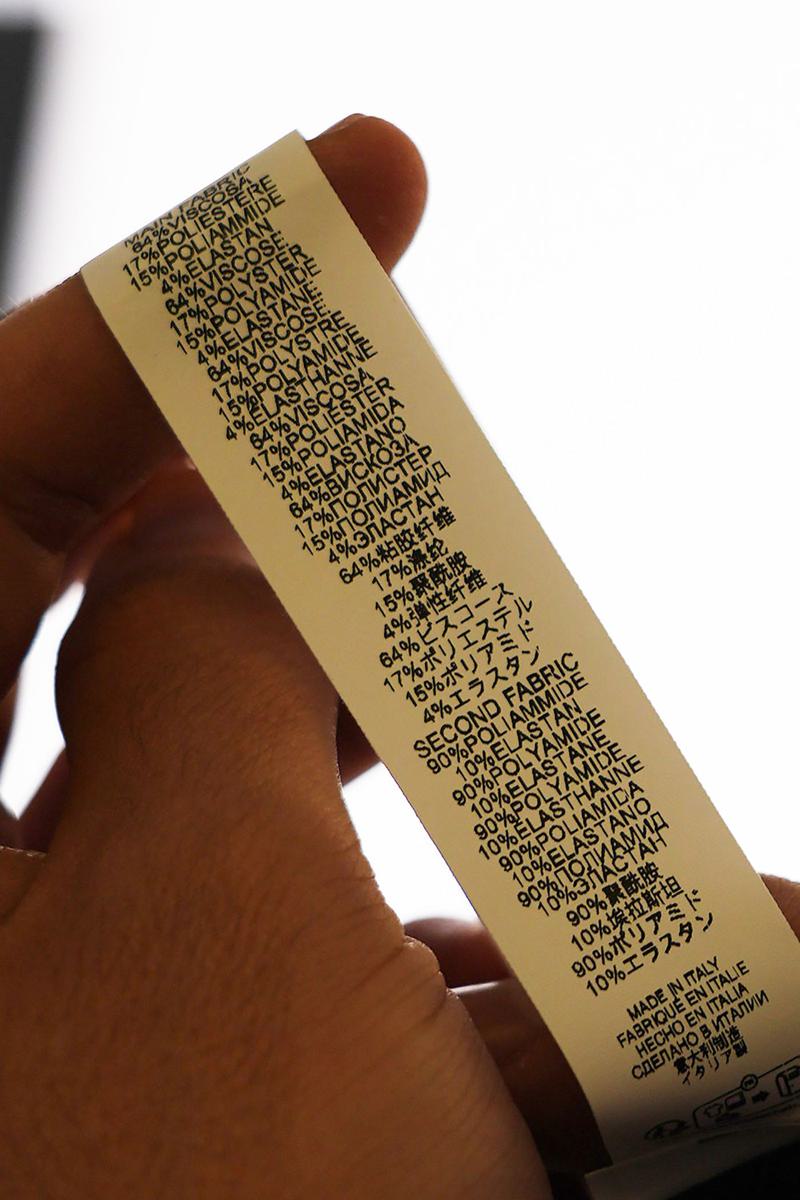 MAIN FABRIC
64%VISCOSA
17%POLIESTERE
15%POLIAMMIDE
4%ELASTAN
64%VISCOSE
17%POLYSTER
15%POLYAMIDE
4%ELASTANE
64%VISCOSE
17%POLYSTRE
15%POLYAMIDE
4%ELASTHANNE
64%VISCOSA
17%POLIÉSTER
15%POLIAMIDA
4%ELASTANO
64%ВИСКОЗА
17%ПОЛИСТЕР
15%ПОЛИАМИД
4%ЭЛАСТАН
64%粘胶纤维
17%涤纶
15%聚酰胺
4%弹性纤维
64%ビスコース
17%ポリエステル
15%ポリアミド
4%エラスタン
SECOND FABRIC
90%POLIAMMIDE
10%ELASTAN
90%POLYAMIDE
10%ELASTANE
90%POLYAMIDE
10%ELASTHANNE
90%POLIAMIDA
10%ELASTANO
90%ПОЛИАМИД
10%ЭЛАСТАН
90%聚酰胺
10%埃拉斯坦
90%ポリアミド
10%エラスタン
MADE IN ITALY
FABRIQUÉ EN ITALIE
HECHO EN ITALIA
СДЕЛАНО В ИТАЛИИ
意大利制造
イタリア製